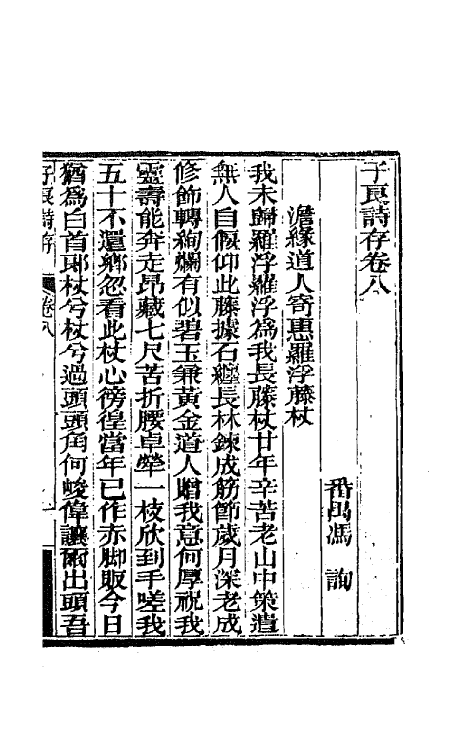 子良詩存卷八
番禺馮 詢
澹緣道人寄惠羅浮藤杖
我未歸羅浮羅浮爲我長藤杖廿年辛苦老山中策遣
無人自偃仰此藤據石纏長林鍊成筋節歲月深老成
修飾轉絢爛有似碧玉兼黃金道人贈我意何厚祝我
靈壽能奔走昂藏七尺苦折腰卓犖一枝欣到手嗟我
五十不還鄉忽看此杖心徬徨當年已作赤脚販今日
猶爲白首郎杖兮杖兮過頭頭角何峻偉讓爾出頭吾
子良詩存 卷八 一